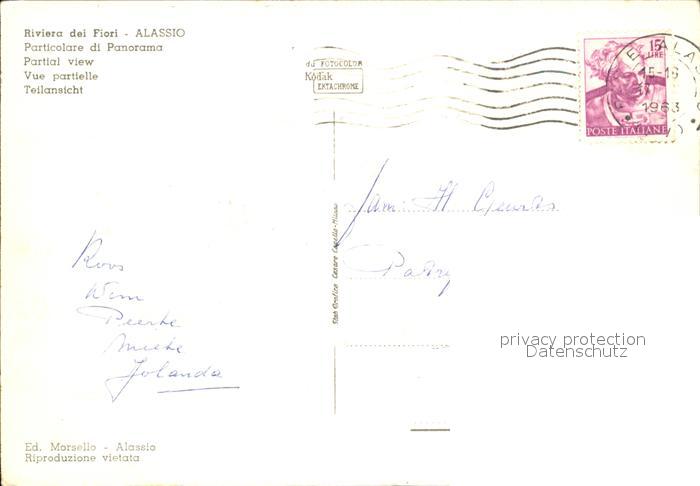 Riviera dei Fiori - ALASSIO
Particolare di Panorama
Partial view
Vue partielle
Teilansicht
da FOTOCOLOR
Kodak
EKTACHROME
15
LIRE
ALAS
15-16
1963
POSTE ITALIANE
Fam. H Geurts
Stab. Grafico Cesare Capello - Milano
Koos
Wim
Peerke
Mieke
Jolanda
privacy protection
Datenschutz
Ed. Morsello - Alassio
Riproduzione vietata